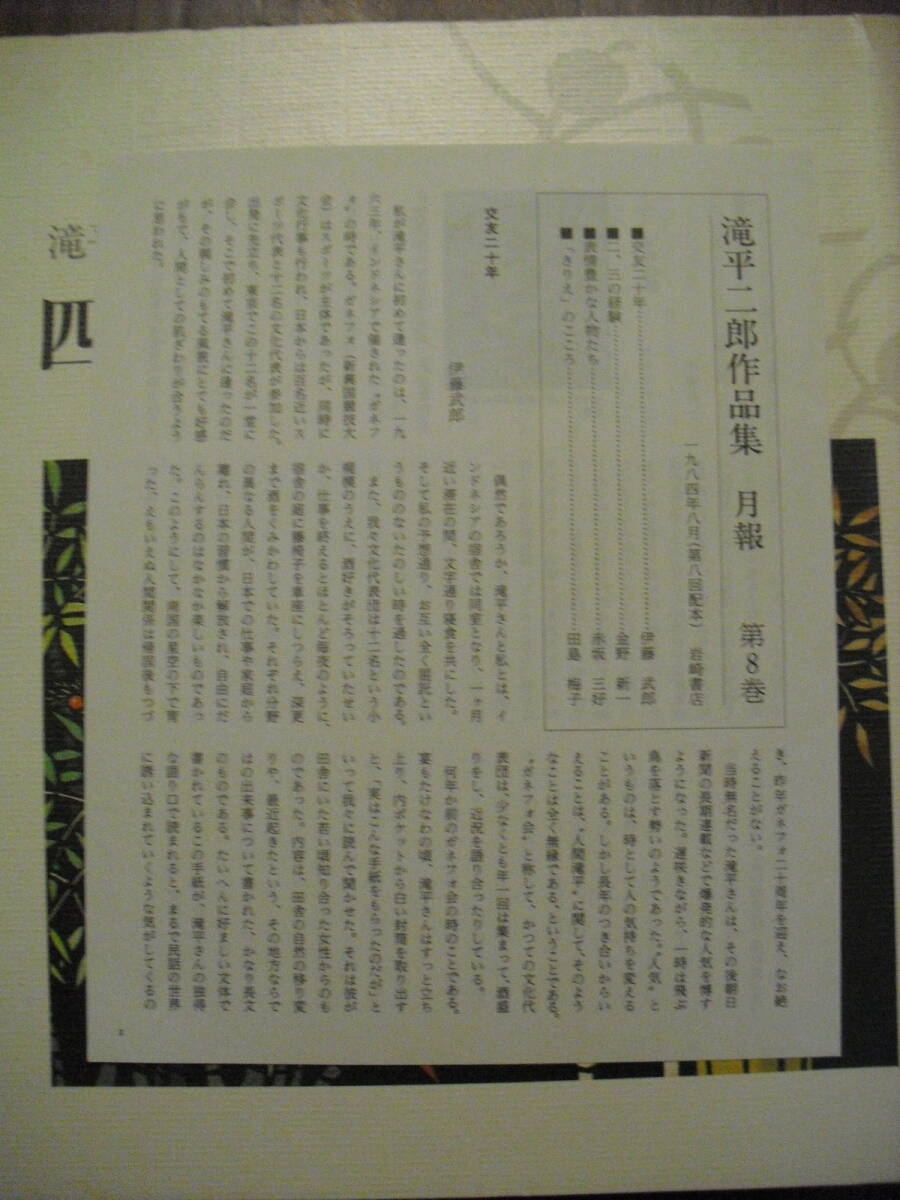 滝平二郎作品集　月報　第8巻
一九八四年八月(第八回配本)　岩崎書店
■交友二十年……伊藤　武郎
■二、三の経験……金野　新一
■表情豊かな人物たち……赤坂　三好
■「きりえ」のこころ……田島　梅子
交友二十年
伊藤武郎
私が滝平さんに初めて逢ったのは、一九
六三年、インドネシアで催された〝ガネフ
ォ〟の時である。ガネフォ(新興国競技大
会)はスポーツが主体であったが、同時に
文化行事も行われ、日本からは百名近いス
ポーツ代表と十二名の文化代表が参加した。
出発に先立ち、東京でこの十二名が一堂に
会し、そこで初めて滝平さんに逢ったのだ
が、その親しみのもてる風貌にとても好感
がもて、人間としての肌ざわりが合うよう
に思われた。
偶然であろうか、滝平さんと私とは、イ
ンドネシアの宿舎では同室となり、一ヶ月
近い滞在の間、文字通り寝食を共にした。
そして私の予想通り、お互い全く屈託とい
うもののないたのしい時を過したのである。
また、我々文化代表団は十二名という小
規模のうえに、酒好きがそろっていたせい
か、仕事を終えるとほとんど毎夜のように、
宿舎の庭に籐椅子を車座にしつらえ、深更
まで酒をくみかわしていた。それぞれ分野
の異なる人間が、日本での仕事や家庭から
離れ、日本の習慣から解放され、自由にだ
べらんするのはなかなか楽しいものであっ
た。このようにして、南国の星空の下で育
った、えもいえぬ人間関係は帰国後もつづ
き、昨年ガネフォ二十周年を迎え、なお絶
えることがない。
当時無名だった滝平さんは、その後朝日
新聞の長期連載などで爆発的な人気を博す
ようになった。遅咲きながら、一時は飛ぶ
鳥を落とす勢いのようであった。〝人気〟と
いうものは、時として人の気持ちを変える
ことがある。しかし長年のつき合いからい
えることは、〝人間滝平〟に関して、そのよう
なことは全く無縁である、ということである。
〝ガネフォ会〟と称して、かつての文化代
表団は、少なくとも年一回は集まって、酒盛
りをし、近況を語り合ったりしている。
何年か前のガネフォ会の時のことである。
宴もたけなわの頃、滝平さんはすっと立ち
上り、内ポケットから白い封筒を取り出す
と、「実はこんな手紙をもらったのだが」と
いって我々に読んで聞かせた。それは彼が
田舎にいた若い頃知り合った女性からのも
のであった。内容は、田舎の自然の移り変
りや、最近起きたという、その地方ならで
はの出来事について書かれた、かなり長文
のものである。たいへんに好ましい文体で
書かれているこの手紙が、滝平さんの独得
な語り口で読まれると、まるで民話の世界
に誘い込まれていくような気がしてくるの
滝
四